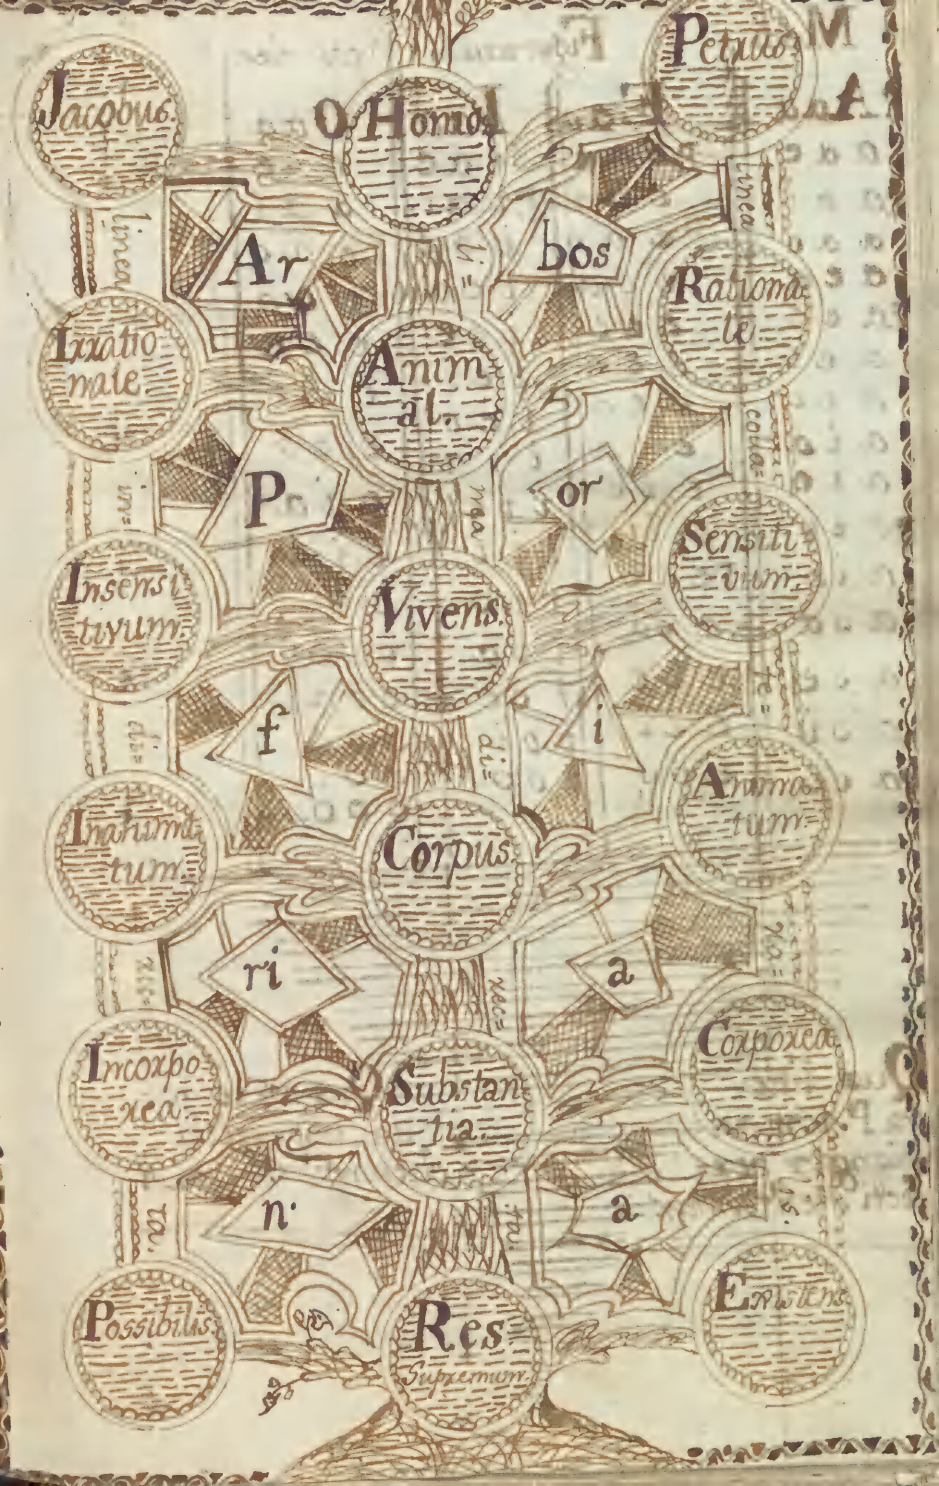 Jacobus.
Homo.
Petrus.
linea
li=
linea
Ar
bos
Irratio
nale.
Anim
al.
Rationa
le.
in=
nea
colla=
P
or
Insensi
tivum.
Vivens.
Sensiti
vum.
di=
di=
te=
f
i
Inanima
tum.
Corpus.
Anima
tum.
rec=
rec=
ra=
ri
a
Incorpo
rea
Substan
tia.
Corporea
ta.
ta.
lis.
n.
a
Possibilis.
Res
Supremum.
Existens.